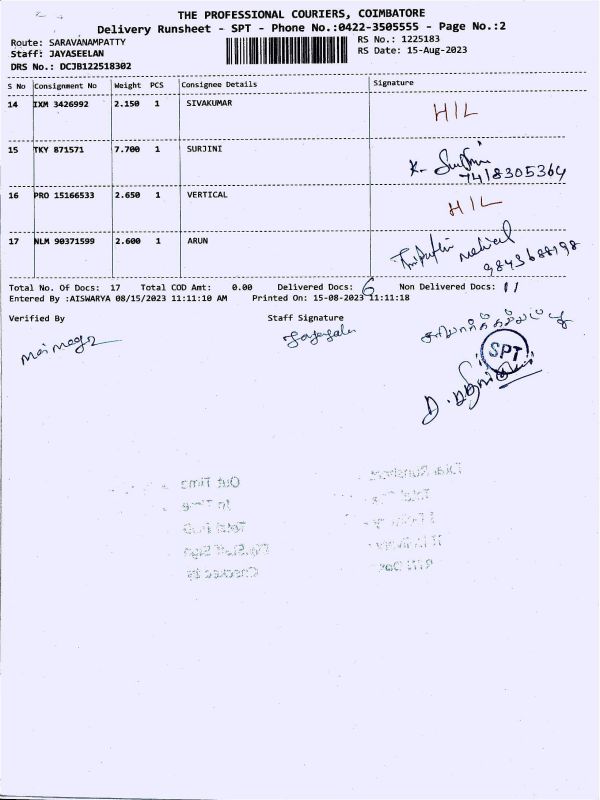 THE PROFESSIONAL COURIERS, COIMBATORE
Delivery Runsheet - SPT - Phone No.:0422-3505555 - Page No.:2
Route: SARAVANAMPATTY
RS No.: 1225183
Staff: JAYASEELAN
RS Date: 15-Aug-2023
DRS No.: DCJB122518302
S No Consignment No Weight PCS Consignee Details Signature
14 IXM 3426992 2.150 1 SIVAKUMAR HIL
15 TKY 871571 7.700 1 SURJINI K.
7418305364
16 PRO 15166533 2.650 1 VERTICAL HIL
17 NLM 90371599 2.600 1 ARUN medical
9843688198
Total No. Of Docs: 17 Total COD Amt: 0.00 Delivered Docs: 6 Non Delivered Docs: 11
Entered By :AISWARYA 08/15/2023 11:11:10 AM Printed On: 15-08-2023 11:11:18
Verified By Staff Signature
SPT
Out Time
In Time
Total POD
Checked By